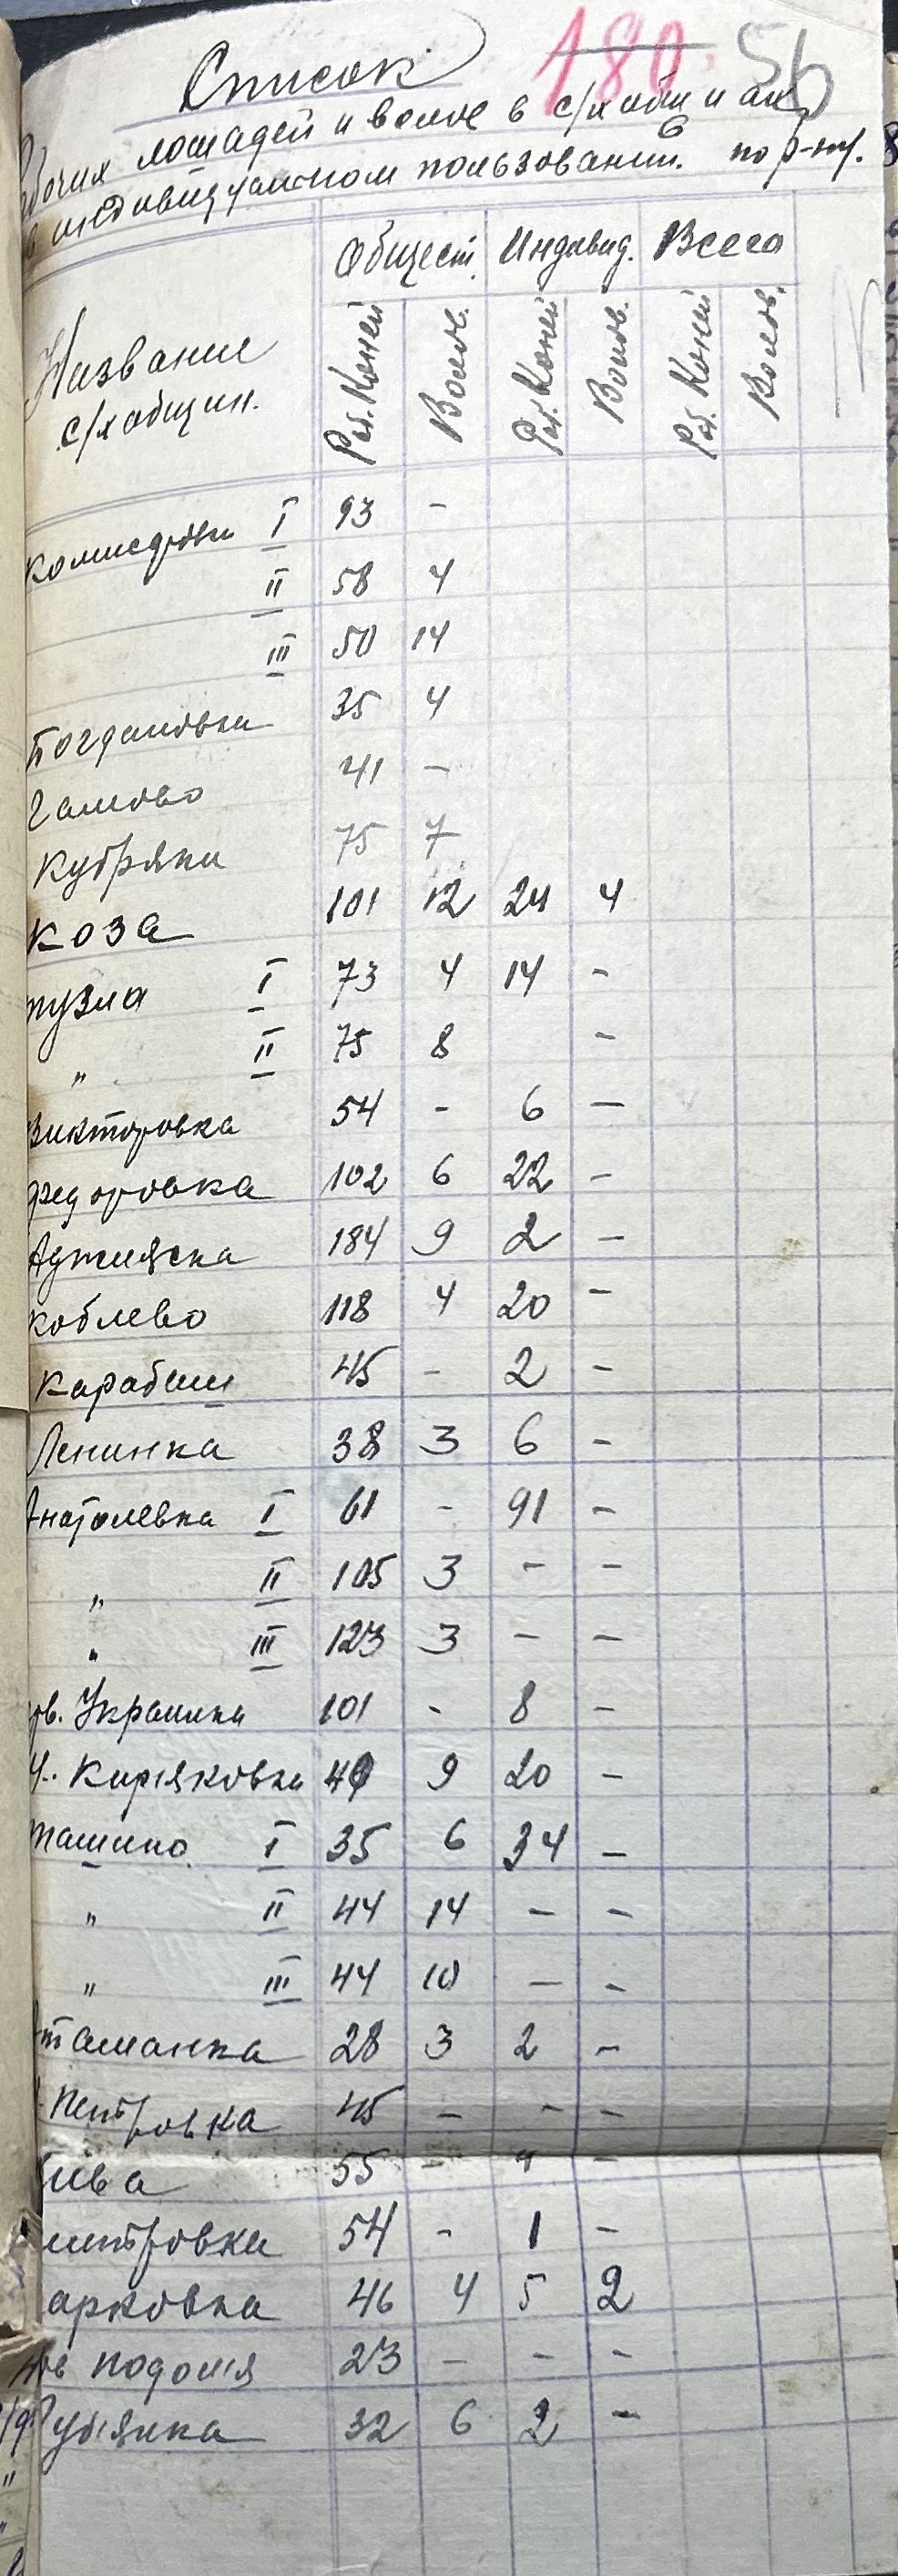 Список 180. 56
рабочих лошадей и волов в с/х общинах
в индивидуальном пользовании. по р-ну.
Название с/х общин. Общест. Индивид. Всего
Раб. Коней Волов. Раб. Коней Волов. Раб. Коней Волов.
Комисаровка I 93 -
II 58 4
III 50 14
Богдановка 35 4
Галиово 41 -
Кубряки 75 7
Коза 101 12 24 4
Тузла I 73 4 14 -
" II 75 8 -
Викторовка 54 - 6 -
Федоровка 102 6 22 -
Аджияска 184 9 2 -
Коблево 118 4 20 -
Карабаш 45 - 2 -
Ленинка 38 3 6 -
Анатолевка I 61 - 91 -
" II 105 3 - -
" III 123 3 - -
ов. Украинка 101 - 8 -
Киряковка 40 9 20 -
Ташино I 35 6 34 -
" II 44 14 - -
" III 44 10 - -
Атаманка 28 3 2 -
Петровка 45 - - -
ива 55 - " -
митровка 54 - 1 -
арковка 46 4 5 2
ов Подолия 23 - - -
32 6 2 -